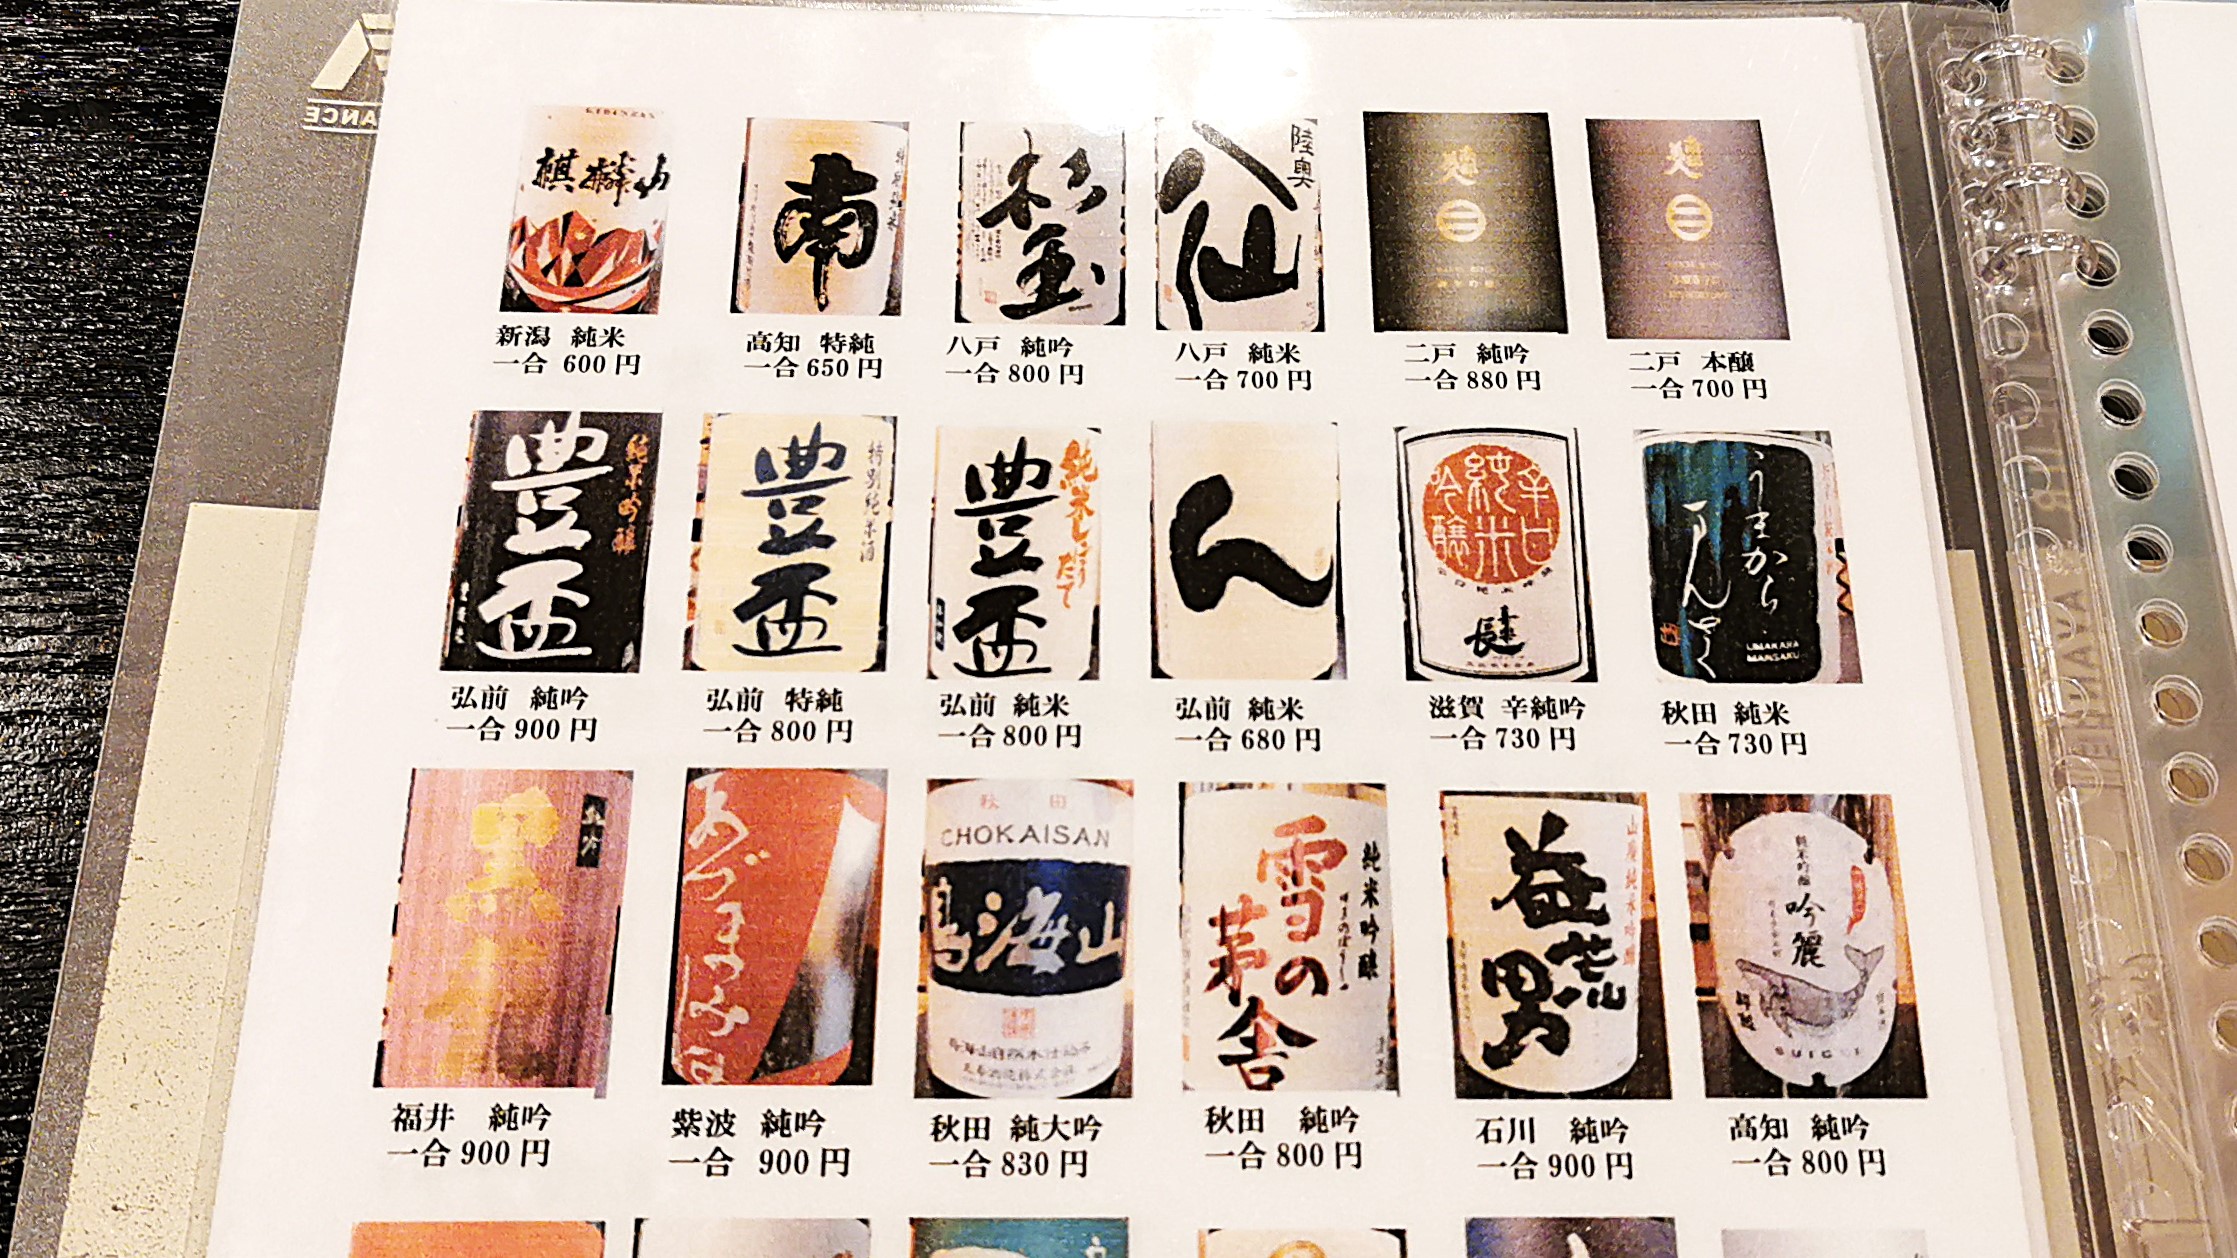 麒麟山
南
杉玉
陸奥
八仙
新潟 純米
一合 600 円
高知 特純
一合 650 円
八戸 純吟
一合 800 円
八戸 純米
一合 700 円
二戸 純吟
一合 880 円
二戸 本醸
一合 700 円
豊盃
純米吟醸
豊盃
特別純米酒
豊盃
純米しぼりたて
ん
辛口
純米
吟醸
うまから
まんさく
UMAKARA
MANSAKU
弘前 純吟
一合 900 円
弘前 特純
一合 800 円
弘前 純米
一合 800 円
弘前 純米
一合 680 円
滋賀 辛純吟
一合 730 円
秋田 純米
一合 730 円
黒
あづまみね
秋田
CHOKAISAN
鳥海山
天寿酒造株式会社
雪の茅舎
純米吟醸
益荒男
山廃純米吟醸
純米吟醸
吟麗
SUIGEI
福井 純吟
一合 900 円
紫波 純吟
一合 900 円
秋田 純大吟
一合 830 円
秋田 純吟
一合 800 円
石川 純吟
一合 900 円
高知 純吟
一合 800 円